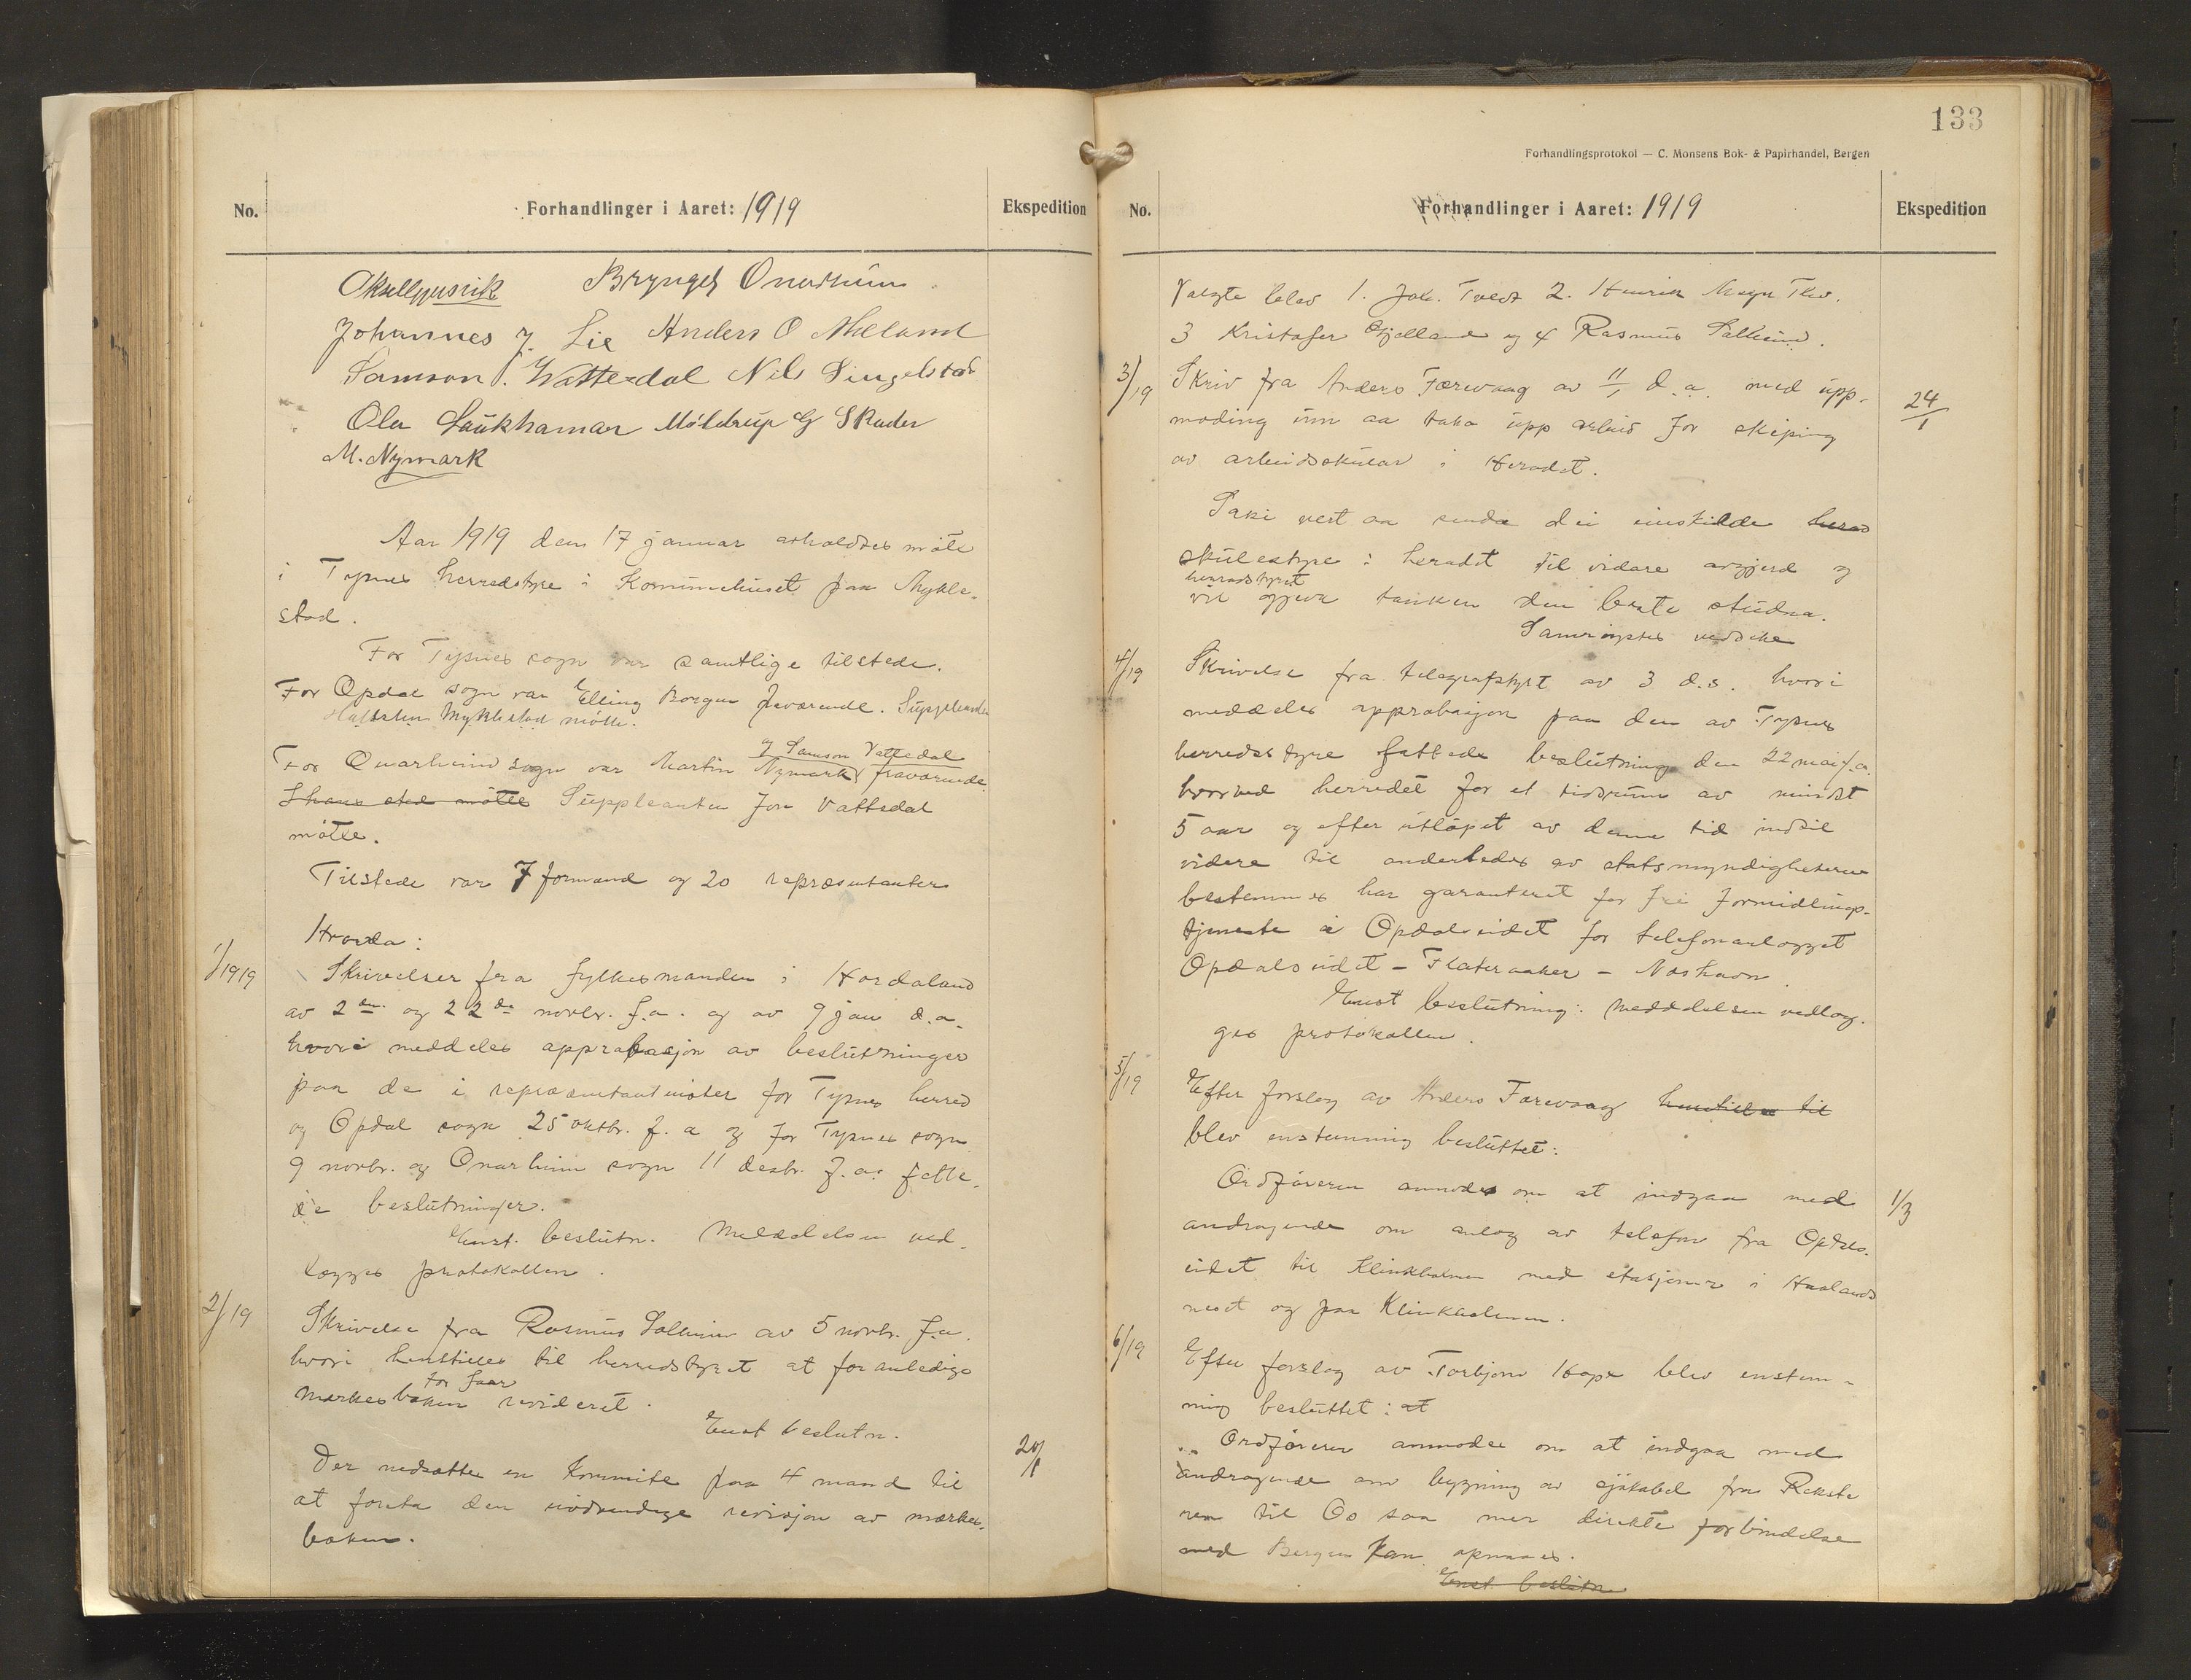 No.
Forhandlinger i Aaret: 1919
Ekspedition
Bryngel Onarheim
Johannes J. Lie Anders O Meland
Samson J. Vattedal Nils Singelstad
Ola Laukhamar Møldrup G Skuder
M. Nymark
Aar 1919 den 17 januar avholdtes møte
i Tysnes herredstyre i Kommunehuset paa Mykle-
stad.
For Tysnes sogn var samtlige tilstede.
For Opdal sogn var Elling Borgen fraværende. Suppleanten
Halsten Myklestad møtte.
og Samson Vattedal
For Onarheim sogn var Martin Nymark fraværende.
I hans sted møtte Suppleanten Jon Vattedal
møtte.
Tilstede var 7 formænd og 20 repræsentanter
Handla:
1/1919
Skrivelser fra fylkesmanden i Hordaland
av 2den og 22de novbr. f.a. og av 9 jan d.a.
hvori meddeles approbasjon av beslutninger
paa de i repræsentantmøter for Tysnes herred
og Opdal sogn 25 oktbr. f.a og for Tysnes sogn
9 novbr. og Onarheim sogn 11 desbr. f.a. fatte-
de beslutninger.
Enst. beslutn. Meddelelsen ved-
lægges protokollen.
2/19
Skrivelse fra Rasmus Solheim av 5 novbr. f.a.
hvori henstilles til herredstyret at foranledige
for faar
merkesboken revideret.
Enst beslutn.
20/1
Der nedsættes en Kommite paa 4 mand til
at foreta den nødvendige revisjon av merkes-
boken.
133
Forhandlingsprotokol — C. Monsens Bok- & Papirhandel, Bergen
No.
Forhandlinger i Aaret: 1919
Ekspedition
Valgte blev 1. Joh. Tveit 2. Henrik
3 Kristofer Gjelland og 4 Rasmus Solheim.
3/19
Skriv fra Anders Færevaag av 11/1 d.a. med upp-
moding um aa taka upp arbeid for skiping
av arbeidsskular i Heradet.
24/1
Saki vert aa senda dei einskilde herad
skulestyre i heradet til vidare avgjerd og
heradstyret
vil gjeva tanken den beste studna.
Samrøystes vedteke
4/19
Skrivelse fra telegrafstyret av 3 d.s. hvori
meddeles approbasjon paa den av Tysnes
herredsstyre fattede beslutning den 22 mai f.a.
hvorved herredet for et tidsrum av mindst
5 aar og efter utløpet av denne tid indtil
videre til anderledes av statsmyndigheterne
bestemmes har garanteret for fri formidlings-
tjeneste i Opdalseidet for telefonanlægget
Opdalseidet – Flateraaker – Neshavn.
Enst beslutning: Meddelelsen vedlæg-
ges protokollen.
5/19
Efter forslag av Anders Færevaag henstilles til
blev enstemmig besluttet:
Ordføreren anmodes om at indgaa med
andragende om anlæg av telefon fra Opdals-
eidet til Klinkholmen med stasjoner i Haalands
neset og paa Klinkholmen.
1/3
6/19
Efter forslag av Torbjørn Hope blev enstem-
mig besluttet: at
Ordføreren anmodes om at indgaa med
andragende om bygning av sjøkabel fra Rekste
ren til Os saa mer direkte forbindelse
med Bergen kan opnaaes.
Enst beslutn